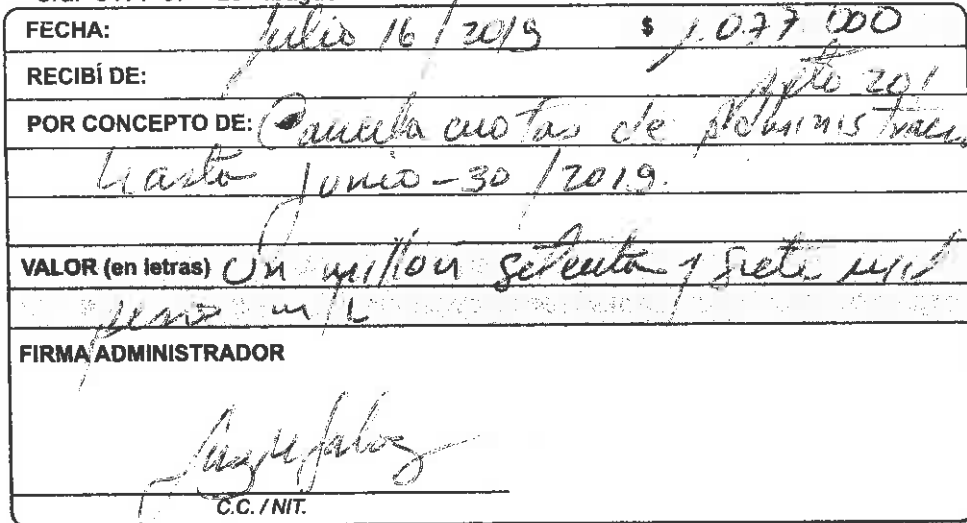 FECHA: Julio 16 / 2019 $ 1.077.000
RECIBÍ DE: Apto 201
POR CONCEPTO DE: Cancela cuotas de Administracion
hasta Junio-30 /2019.
VALOR (en letras) Un millón setenta y siete mil
pesos m/L
FIRMA ADMINISTRADOR
C.C. / NIT.